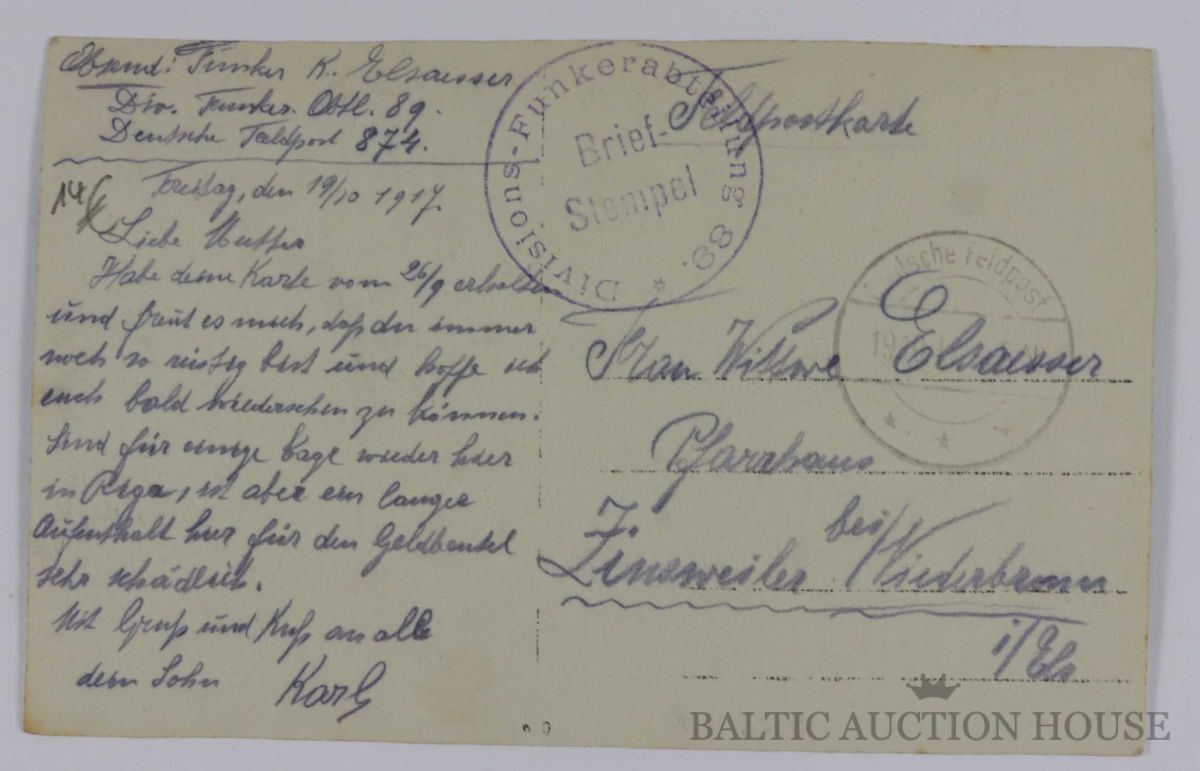 Absend: Funker K. Elsaesser
Div. Funker. Abtl. 89.
Deutsche Feldpost 874.
Freitag, den 19/10 1917
Liebe Mutter
Habe deine Karte vom 26/9 erhalten
und freut es mich, daß du immer
noch so rüstig bist und hoffe ich
euch bald wiedersehen zu können.
Sind für einige Tage wieder hier
in Riga, ist aber ein langer
Aufenthalt hier für den Geldbeutel
sehr schädlich.
Mit Gruß und Kuß an alle
dein Sohn Karl
Divisions-Funkerabteilung 89. *
Brief-
Stempel
Feldpostkarte
Deutsche Feldpost
19
Frau Wittwe Elsaesser
Pfarrhaus
Zinsweiler bei/Niederbronn
i/Els
BALTIC AUCTION HOUSE